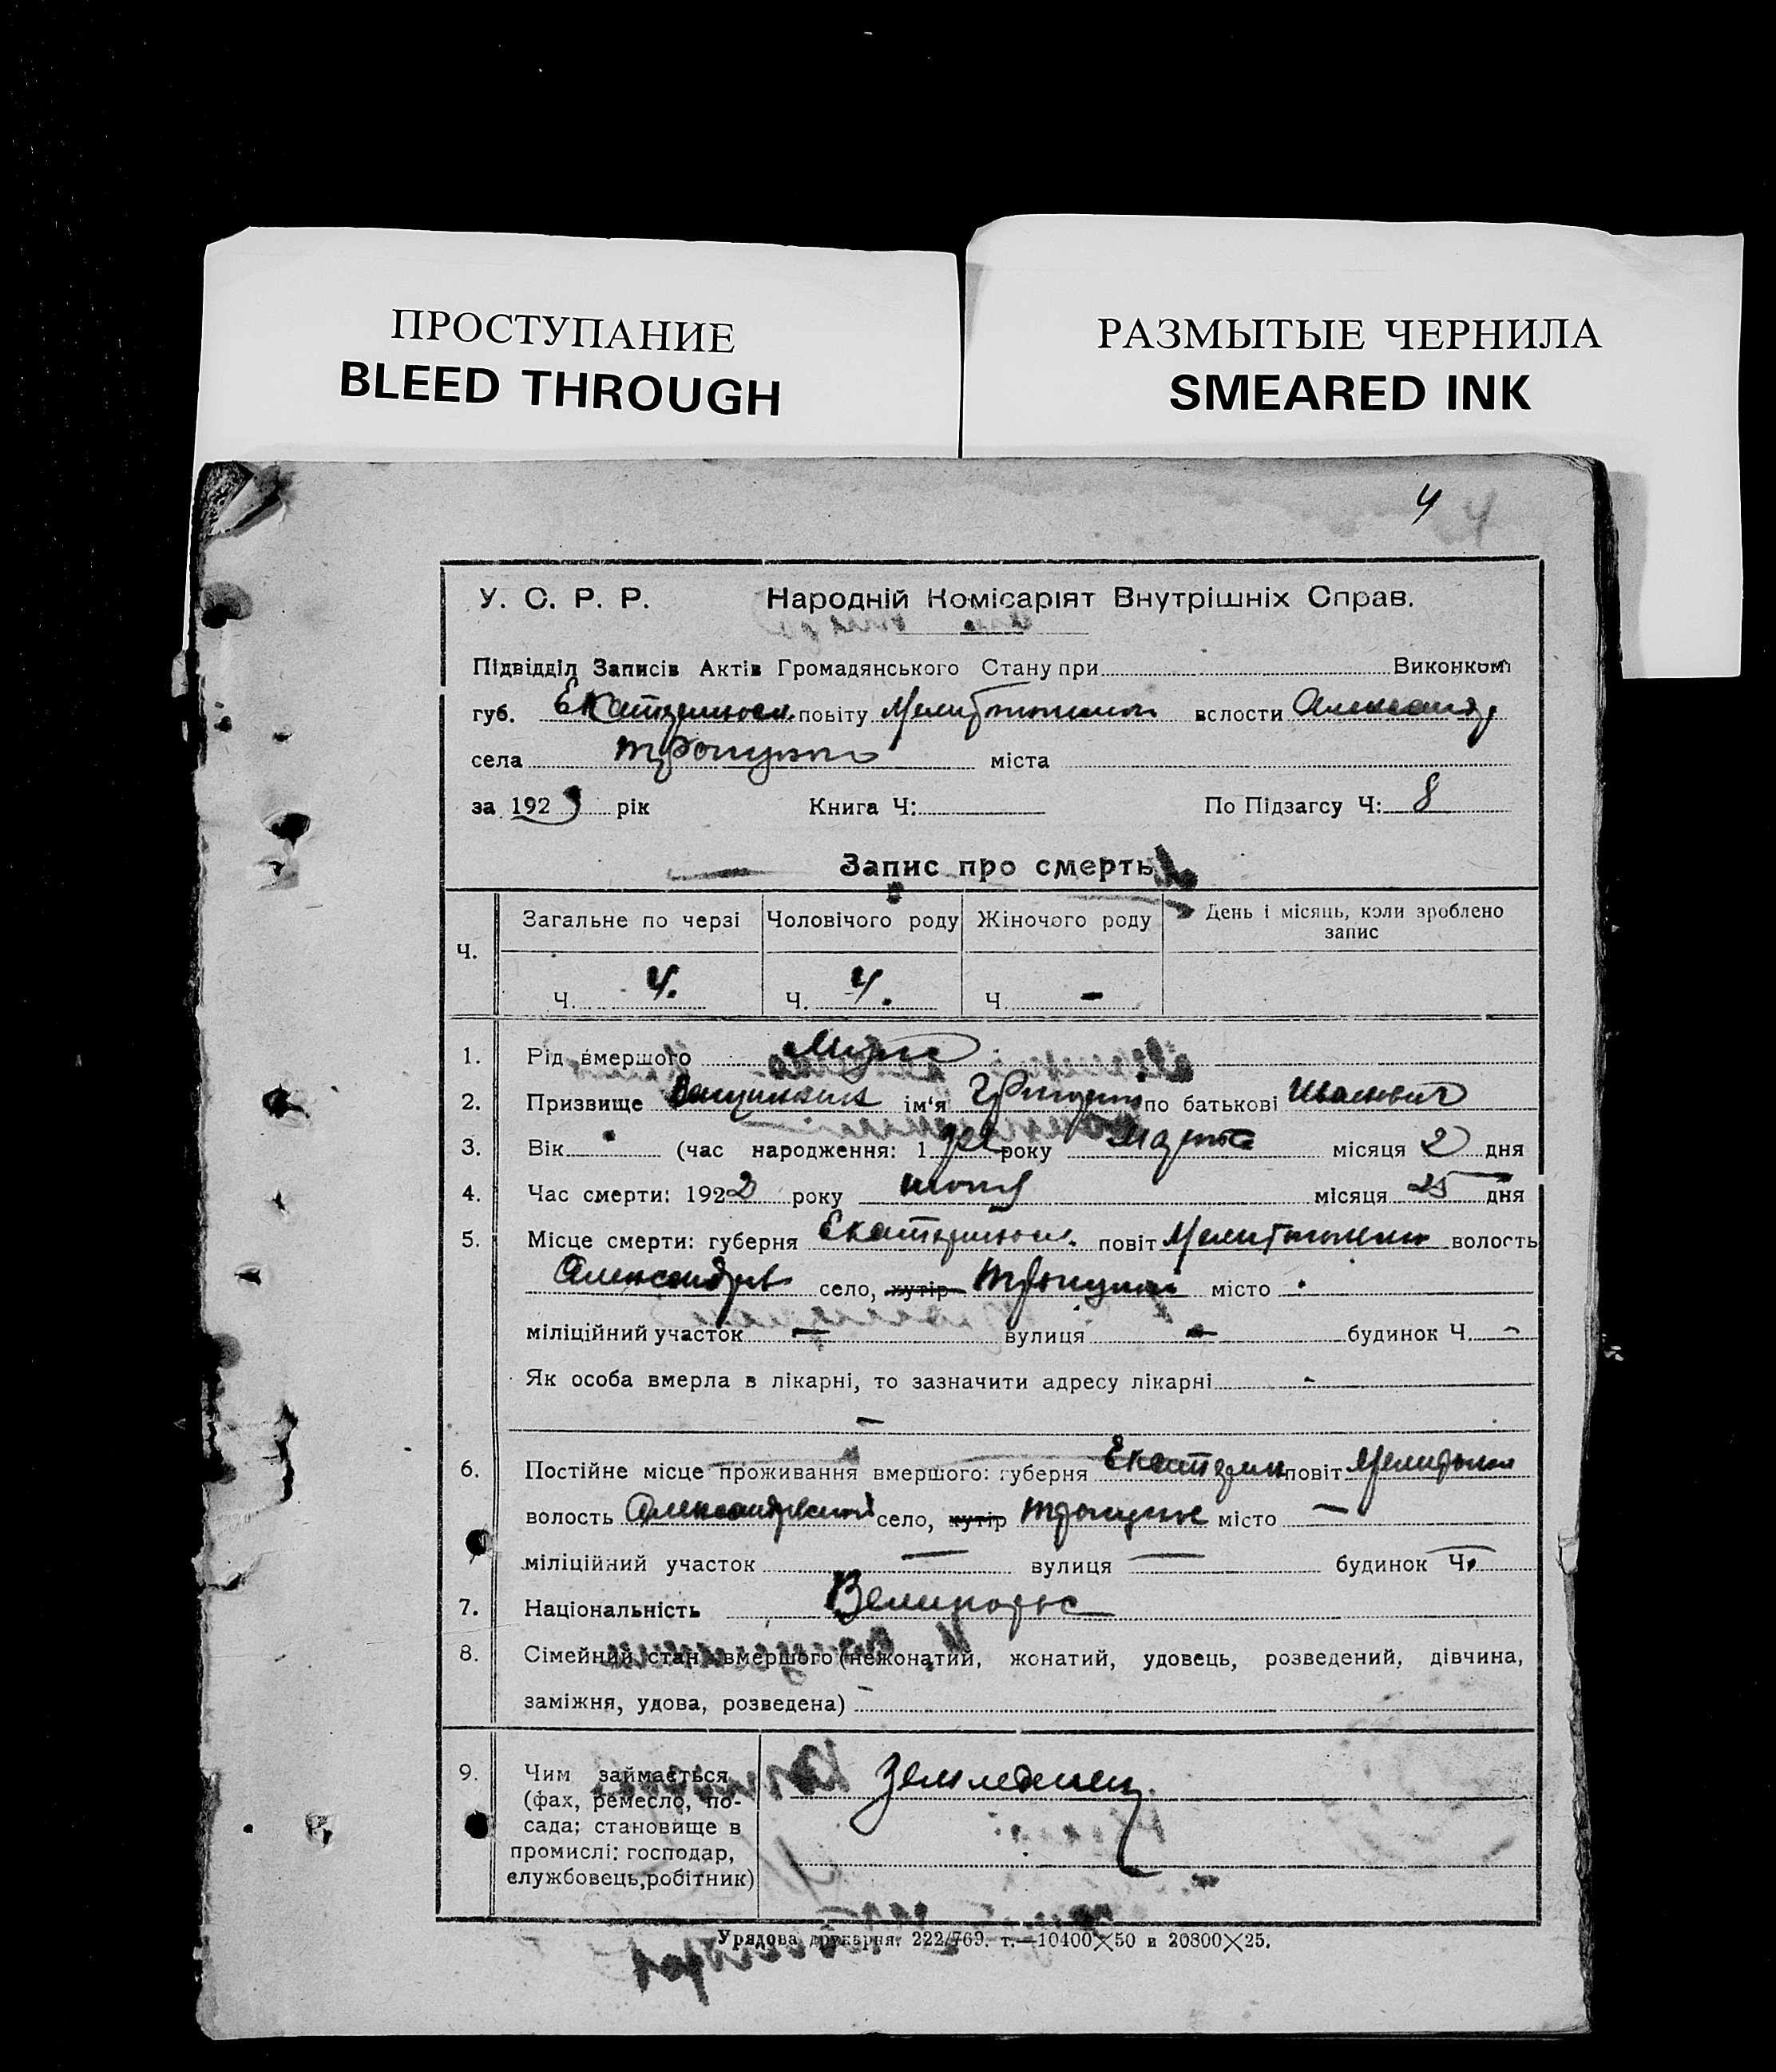 ПРОСТУПАНИЕ
BLEED THROUGH
РАЗМЫТЫЕ ЧЕРНИЛА
SMEARED INK
4 4
У. С. Р. Р. Народній Комісаріят Внутрішніх Справ.
Підвідділ Записів Актів Громадянського Стану при Виконком
губ. повіту волости Александр
села міста
за 192 рік Книга Ч: По Підзагсу Ч: 8
Запис про смерть
Ч. Загальне по черзі Чоловічого роду Жіночого роду День і місяць, коли зроблено
запис
Ч. 4. Ч. 4. Ч. -
1. Рід вмершого
2. Призвище ім'я Григорий по батькові Иванович
3. Вік (час народження: 1 року марта місяця 2 дня
4. Час смерти: 1922 року июня місяця 25 дня
5. Місце смерти: губерня повіт волость
село, хутір місто
міліційний участок — вулиця — будинок Ч. -
Як особа вмерла в лікарні, то зазначити адресу лікарні -
—
6. Постійне місце проживання вмершого: губерня Екатерин повіт
волость Александровской село, хутір Троицкое місто —
міліційний участок — вулиця — будинок Ч.
7. Національність Великорос
8. Сімейний стан вмершого (нежонатий, жонатий, удовець, розведений, дівчина,
заміжня, удова, розведена) -
9. Чим займається
(фах, ремесло, по-
сада; становище в
промислі: господар,
службовець, робітник)
Земледелец.
Урядова друкарня. 222/769. т.—10400×50 и 20800×25.